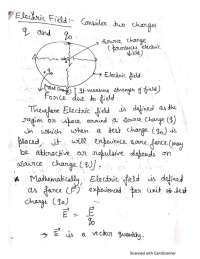 Electric Field:- Consider two charges
q and q₀
Source charge
(produces electric
field)
Electric field
(It measures strength of field)
Force due to field
Therefore Electric field is defined as the
region or space around a source charge (q)
in which when a test charge (q₀) is
placed, it will experience some force (may
be attractive or repulsive depends on
source charge (q)).
* Mathematically, Electric field is defined
as force (F) experienced per unit test
charge (q₀)
E = F/q₀
→ E is a vector quantity.
Scanned with CamScanner